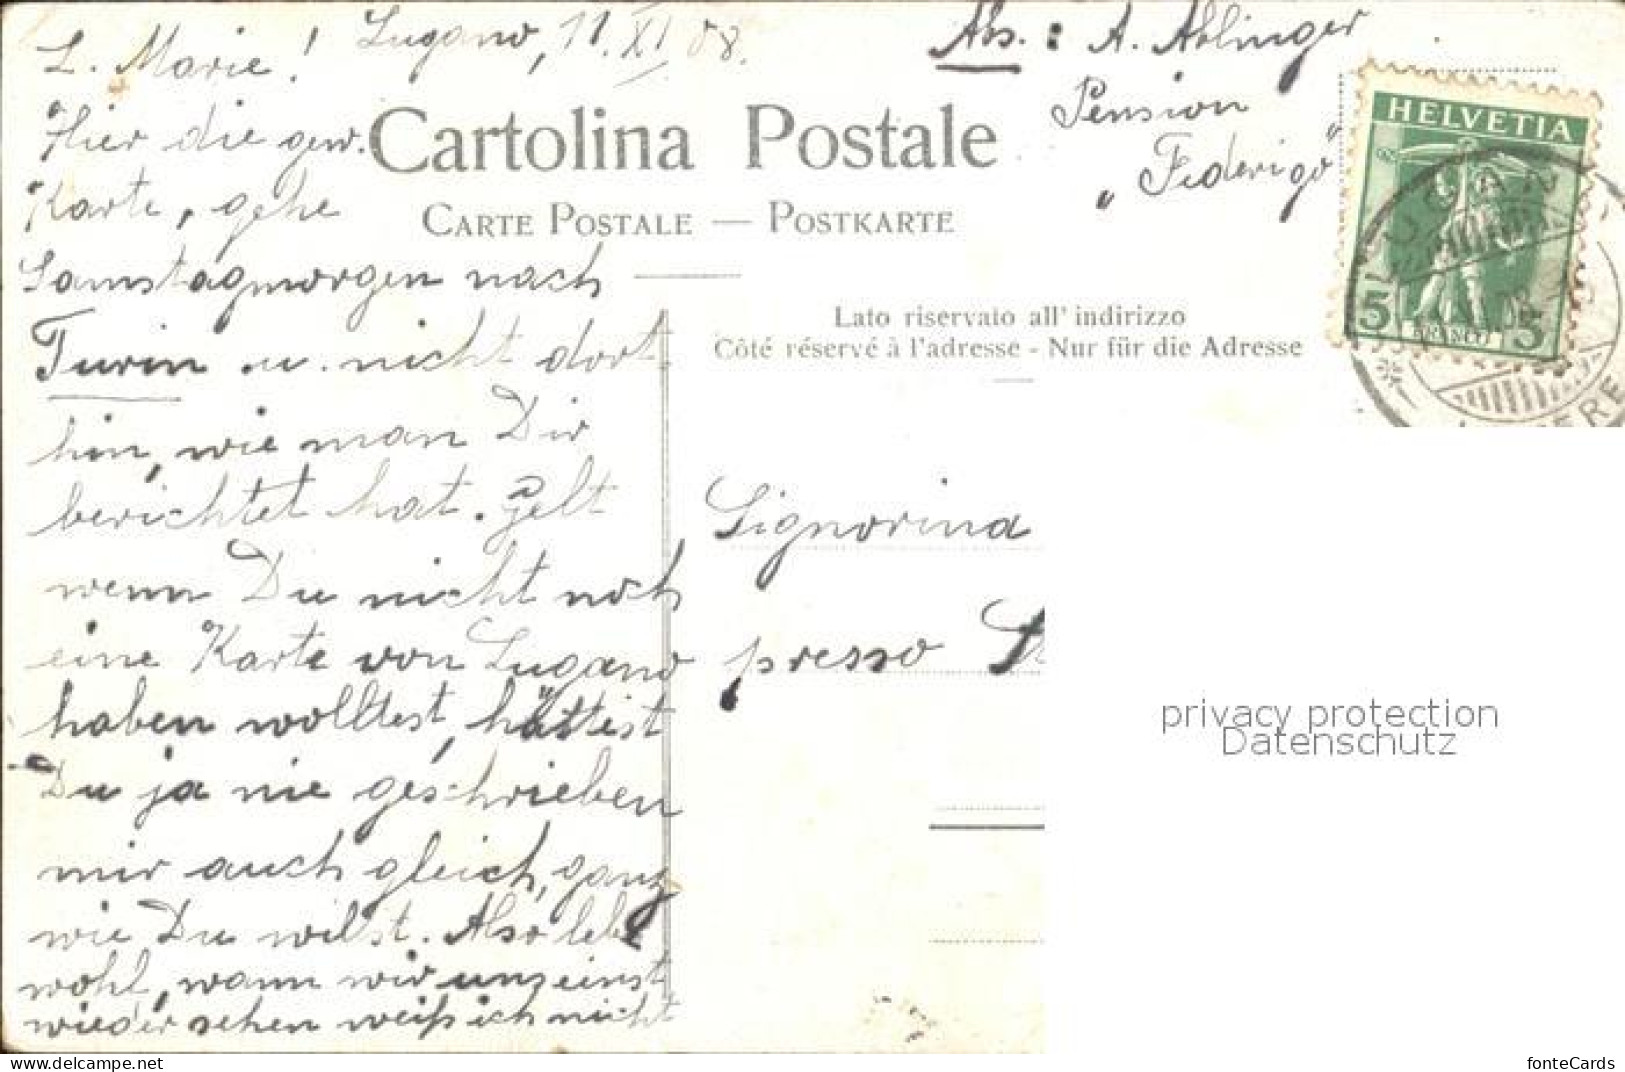 L. Marie! Lugano, 11. XI. 08.
Abs.: A. Ablinger
Pension
„Federigo“
Hier die gew.
Karte, gehe
Samstagmorgen nach
Turin u. nicht dort
hin, wie man Dir
berichtet hat. gelt
wenn Du nicht noch
eine Karte von Lugano
haben wolltest, hättest
Du ja nie geschrieben
mir auch gleich, ganz
wie Du willst. Also lebe
wohl, wann wir uns einst
wieder sehen weiß ich nicht
Cartolina Postale
CARTE POSTALE — POSTKARTE
Lato riservato all' indirizzo
Côté réservé à l'adresse - Nur für die Adresse
HELVETIA
5 FRANCO 5
LUGANO
Signorina
presso
privacy protection
Datenschutz
delcampe.net
fonteCards